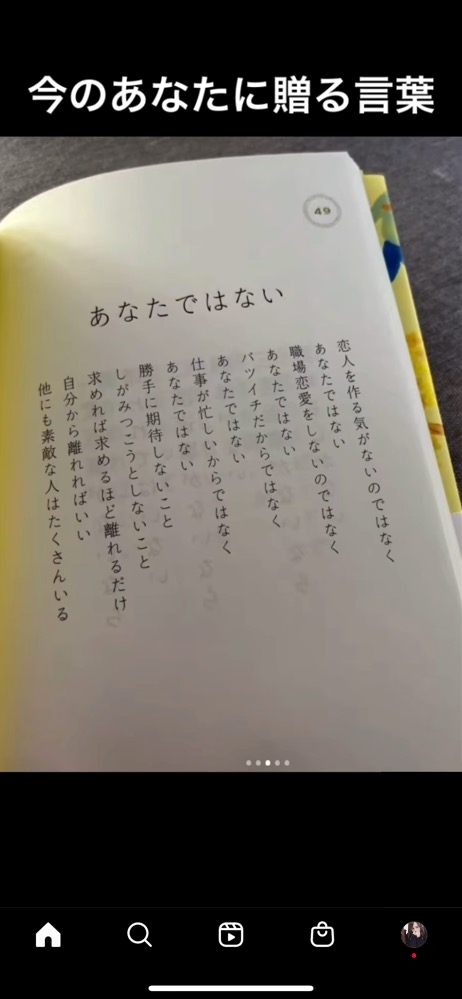 今のあなたに贈る言葉
49
あなたではない
恋人を作る気がないのではなく
あなたではない
職場恋愛をしないのではなく
あなたではない
バツイチだからではなく
あなたではない
仕事が忙しいからではなく
あなたではない
勝手に期待しないこと
しがみつこうとしないこと
求めれば求めるほど離れるだけ
自分から離れればいい
他にも素敵な人はたくさんいる